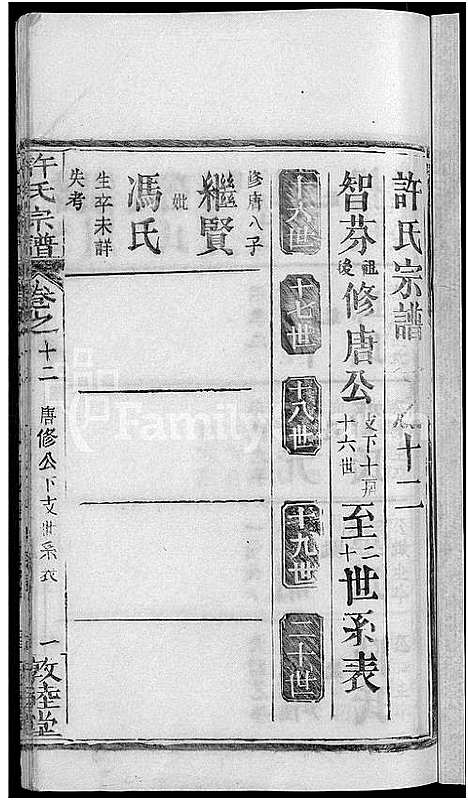 許氏宗譜 卷十二
智芬祖後修唐公支下十六世至二十世系表
十六世
十七世
十八世
十九世
二十世
修唐八子
繼賢
妣
馮氏
生卒未詳
失考
許氏宗譜 卷之十二 唐修公下支世系表 一 敦睦堂
FamilySearch